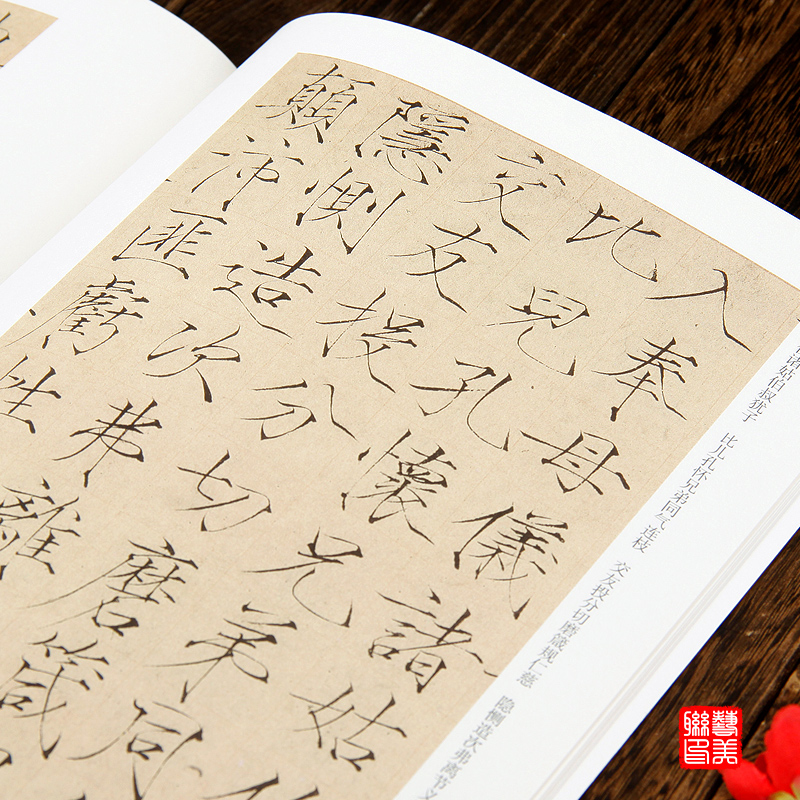 入奉母儀諸姑
比兒孔懷兄弟同
交友投分切磨箴
隱惻造次弗離
顛沛匪虧性
诸姑伯叔犹子 比儿孔怀兄弟同气 连枝 交友投分切磨箴规仁慈 隐恻造次弗离节义
藝美
聯印